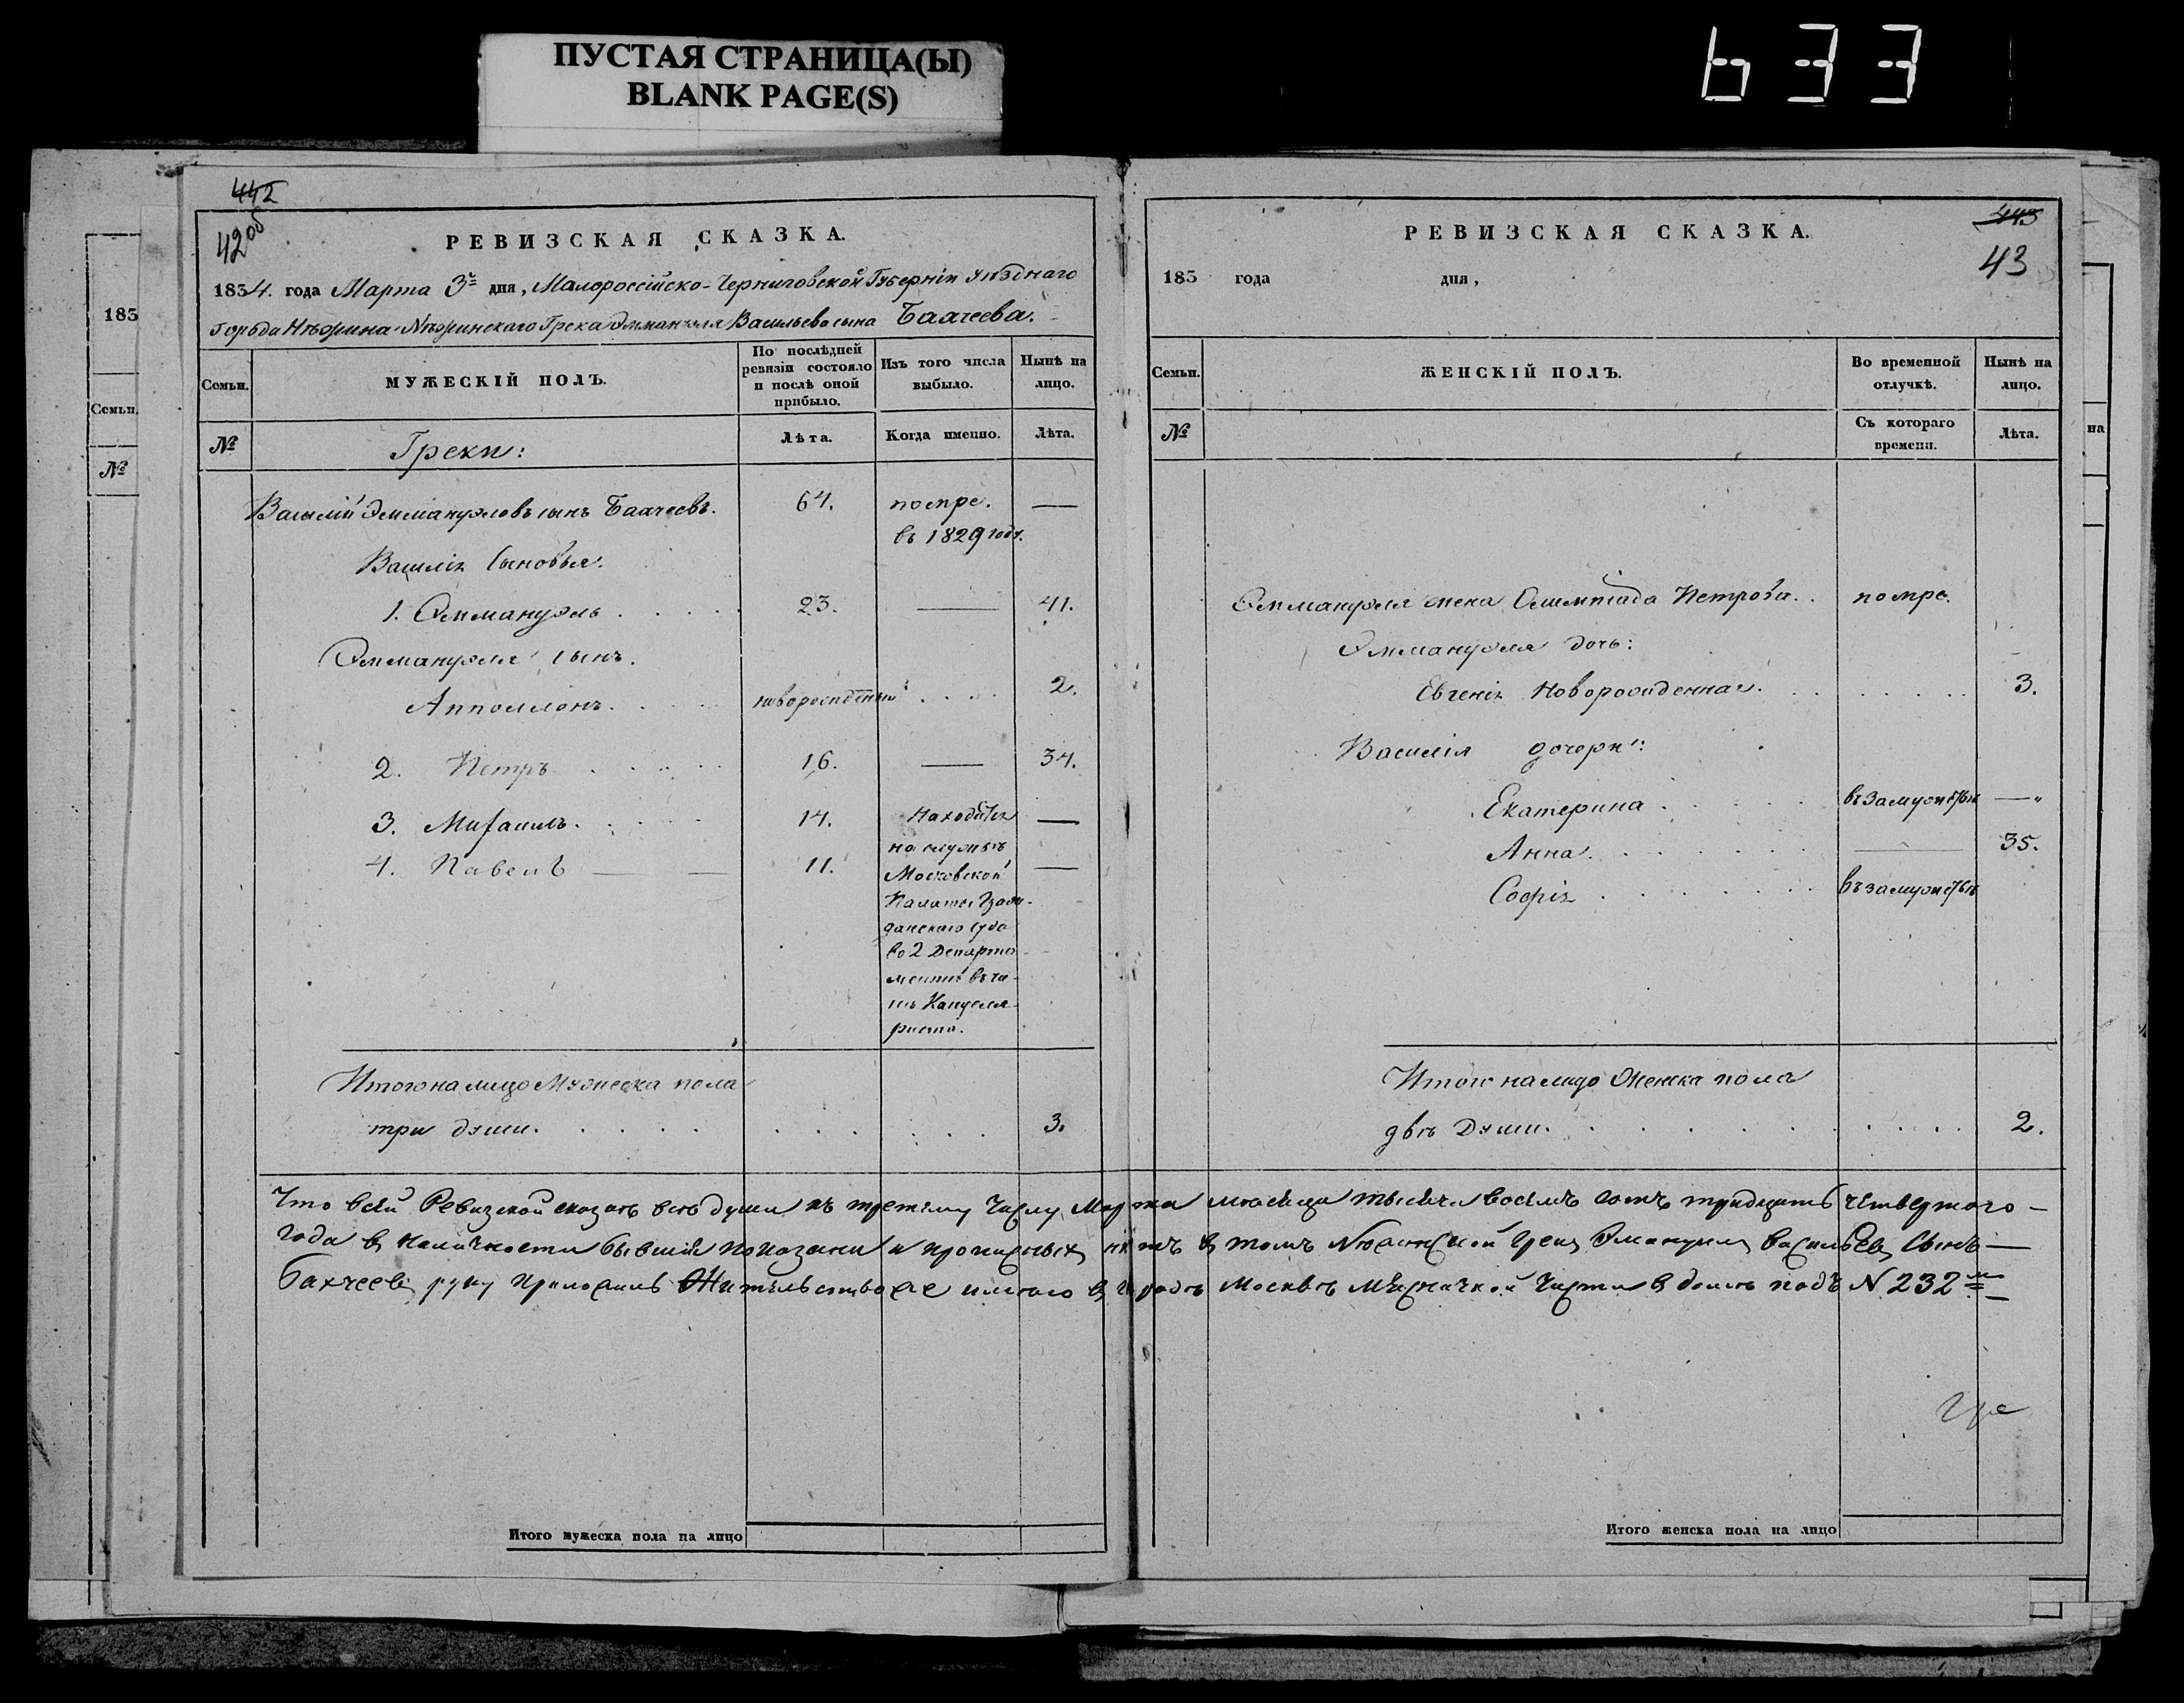 ПУСТАЯ СТРАНИЦА(Ы)
BLANK PAGE(S)
633
442
42об
РЕВИЗСКАЯ СКАЗКА.
1834. года Марта 3го дня, Малороссійско-Черниговской Губерніи уѣзднаго
города Нѣжина Нѣжинскаго Грека Эммануэля Васильева сына Бахчеева.
Семьи.
МУЖЕСКІЙ ПОЛЪ.
По послѣдней ревизіи состояло и послѣ оной прибыло.
Изъ того числа выбыло.
Нынѣ на лицо.
№
Греки:
Лѣта.
Когда именно.
Лѣта.
Василій Эммануэловъ сынъ Бахчеевъ. 64. помре. —
въ 1829 году.
Василія Сыновья.
1. Эммануэль . . . . 23. — 41.
Эммануэля сынъ.
Апполлонъ. . . . новорожденный . . . 2.
2. Петръ . . . . 16. — 34.
3. Михаилъ. . . . 14. Находится —
на службѣ
4. Павелъ — — 11. Московской —
Палаты Граж-
данскаго суда
во 2 Департа-
ментѣ въ чи-
нѣ Канцеля-
риста.
Итого на лицо Мужеска пола
три души. . . . . 3.
443
43
РЕВИЗСКАЯ СКАЗКА.
183 года дня,
Семьи.
ЖЕНСКІЙ ПОЛЪ.
Во временной отлучкѣ.
Нынѣ на лицо.
№
Съ котораго времени.
Лѣта.
Эммануэля жена Олимпіада Петрова. . помре.
Эммануэля дочь:
Евгенія Новорожденная. . . . . 3.
Василія дочери:
Екатерина . . . . въ замужствѣ —„
Анна. . . . . — 35.
Софія . . . . . въ замужствѣ
Итого на лицо Женска пола
двѣ Души. . . . . 2.
Что въ сей Ревизской сказкѣ всѣ души къ третьему Числу Марта месяца тысяча восемъ сотъ тридцать четвертого —
года в наличности бывшия показаны и прописных нетъ в томъ Неженской Грек Эмануил Васильев Сынъ —
Бахчеев руку приложилъ Жительство же имею в городѣ Москвѣ Мясничкой Части в домѣ подъ N 232м
Итого мужеска пола на лицо
Итого женска пола на лицо
183
Семьи.
№
на